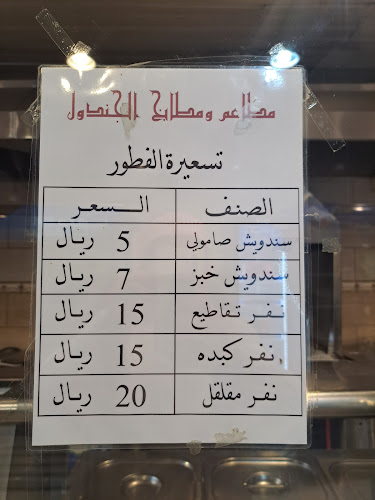 مطاعم ومطابخ الجندول
تسعيرة الفطور
الصنف السعر
سندويش صامولي 5 ريال
سندويش خبز 7 ريال
نفر تقاطيع 15 ريال
نفر كبده 15 ريال
نفر مقلقل 20 ريال